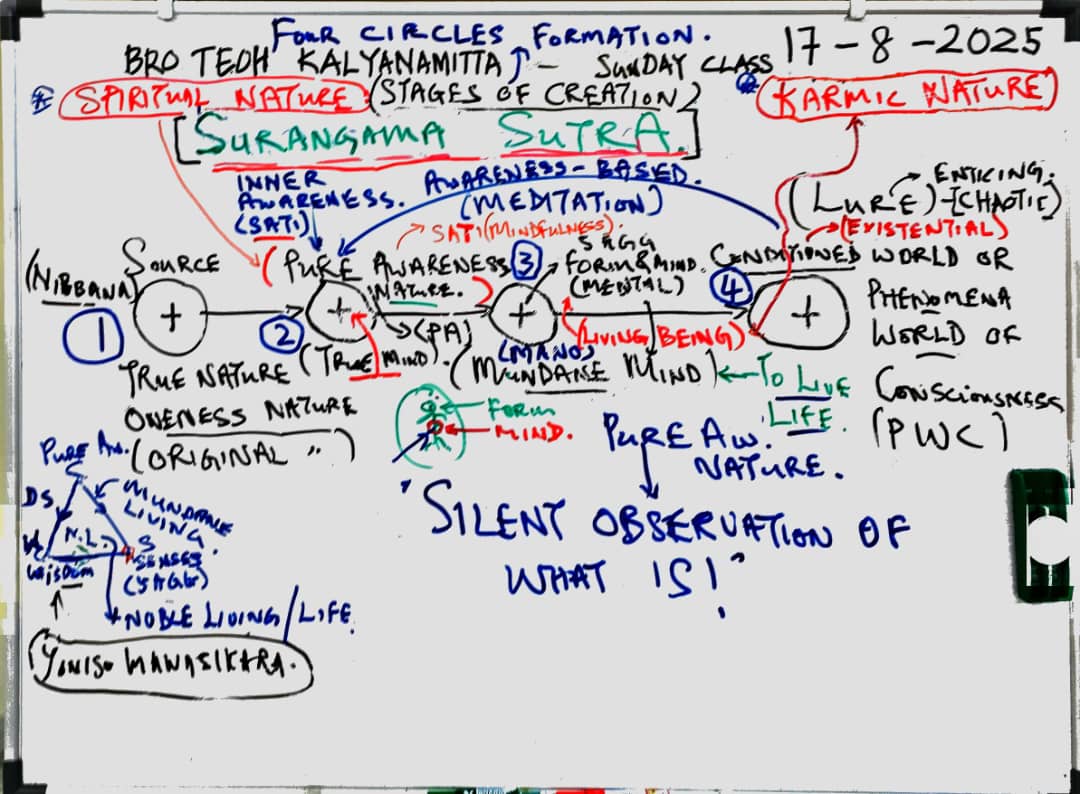 FOUR CIRCLES FORMATION.
BRO TEOH KALYANAMITTA - SUNDAY CLASS 17-8-2025
SPIRITUAL NATURE (STAGES OF CREATION)
KARMIC NATURE
[SURANGAMA SUTRA.]
INNER
AWARENESS.
(SATI)
AWARENESS-BASED.
(MEDITATION)
SATI (MINDFULNESS).
ENTICING.
(LURE)-[CHAOTIC]
(EXISTENTIAL)
(NIBBANA)
SOURCE
+
1
TRUE NATURE
ONENESS NATURE
(ORIGINAL ")
(PURE AWARENESS
NATURE.)
2
+
(PA)
(TRUE MIND).
3
5AGG
FORM & MIND.
(MENTAL)
+
(MANO)
(MUNDANE MIND)
(LIVING BEING)
TO LIVE
LIFE.
4
+
CONDITIONED WORLD OR
PHENOMENA
WORLD OF
CONSCIOUSNESS
(PWC)
FORM
MIND.
PURE AW.
NATURE.
"SILENT OBSERVATION OF
WHAT IS!"
PURE AW.
DS
MUNDANE
LIVING.
N.L.
W
WISDOM
S
SENSES
(5 AGG)
NOBLE LIVING/LIFE.
YONISO MANASIKARA.